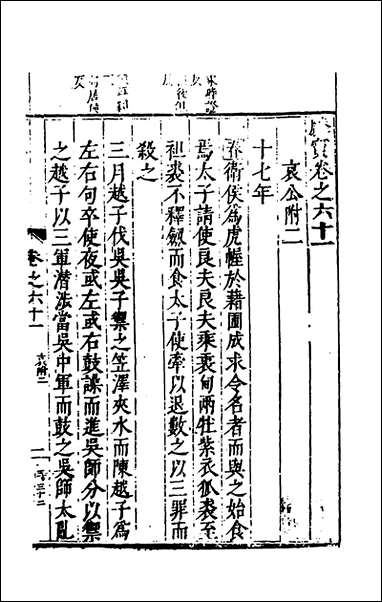 寶卷之六十一
哀公附二
十七年
春衛侯為虎幄於藉圃成求令名者而與之始食
焉太子請使良夫良夫乘衷甸兩牡紫衣狐裘至
袒裘不釋劒而食太子使牽以退數之以三罪而
殺之
三月越子伐吳吳子禦之笠澤夾水而陳越子為
左右句卒使夜或左或右鼓譟而進吳師分以禦
之越子以三軍潛涉當吳中軍而鼓之吳師太亂
卷之六十一